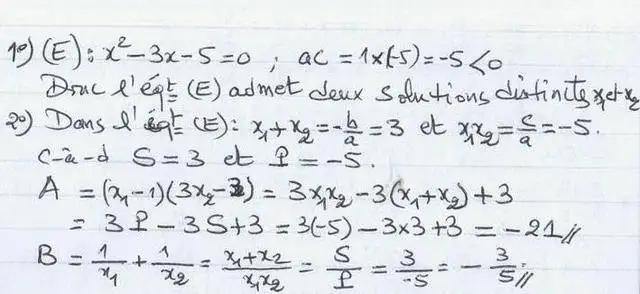 1°) (E): x² - 3x - 5 = 0 ; ac = 1×(-5) = -5 < 0
Donc l'éqt (E) admet deux solutions distinctes x₁ et x₂
2°) Dans l'éqt (E): x₁ + x₂ = -b/a = 3 et x₁x₂ = c/a = -5.
c-à-d S = 3 et P = -5.
A = (x₁ - 1)(3x₂ - 3) = 3x₁x₂ - 3(x₁ + x₂) + 3
= 3P - 3S + 3 = 3(-5) - 3×3 + 3 = -21 //
B = 1/x₁ + 1/x₂ = x₁+x₂/x₁x₂ = S/P = 3/-5 = - 3/5 //